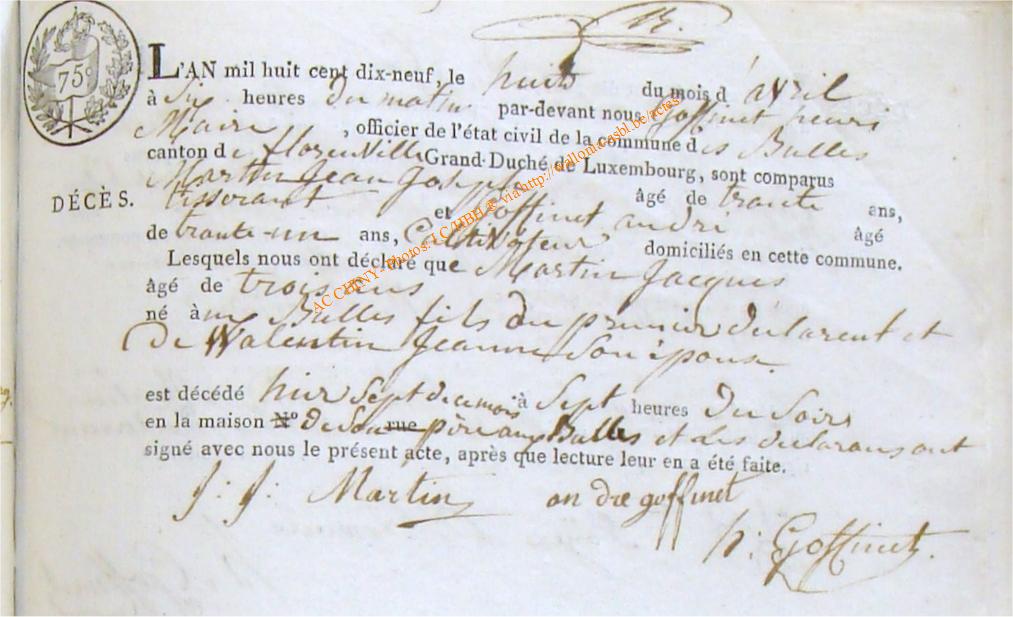 75c
L'AN mil huit cent dix-neuf, le huit du mois d avril
à Six heures du matin par-devant nous Goffinet henri
Maire , officier de l'état civil de la commune des Bulles
canton de florenville Grand-Duché de Luxembourg, sont comparus
Martin Jean Joseph âgé de trante ans,
DÉCÈS.
tisserant et Goffinet andré âgé
de trante-un ans, Cultivateur domiciliés en cette commune.
Lesquels nous ont déclaré que Martin Jacques
âgé de trois ans
né à Bulles fils du premier declarent et
de Valentin Jeanne Son épouse.
est décédé hier Sept du mois à Sept heures du Soir
en la maison N° de Son rue père aux Bulles et les declarans ont
signé avec nous le présent acte, après que lecture leur en a été faite.
J: J: Martin andre goffinet
h: Goffinet.
AC CHINY - Photos: LCHBH © via http://wallonia-asbl.be/actes